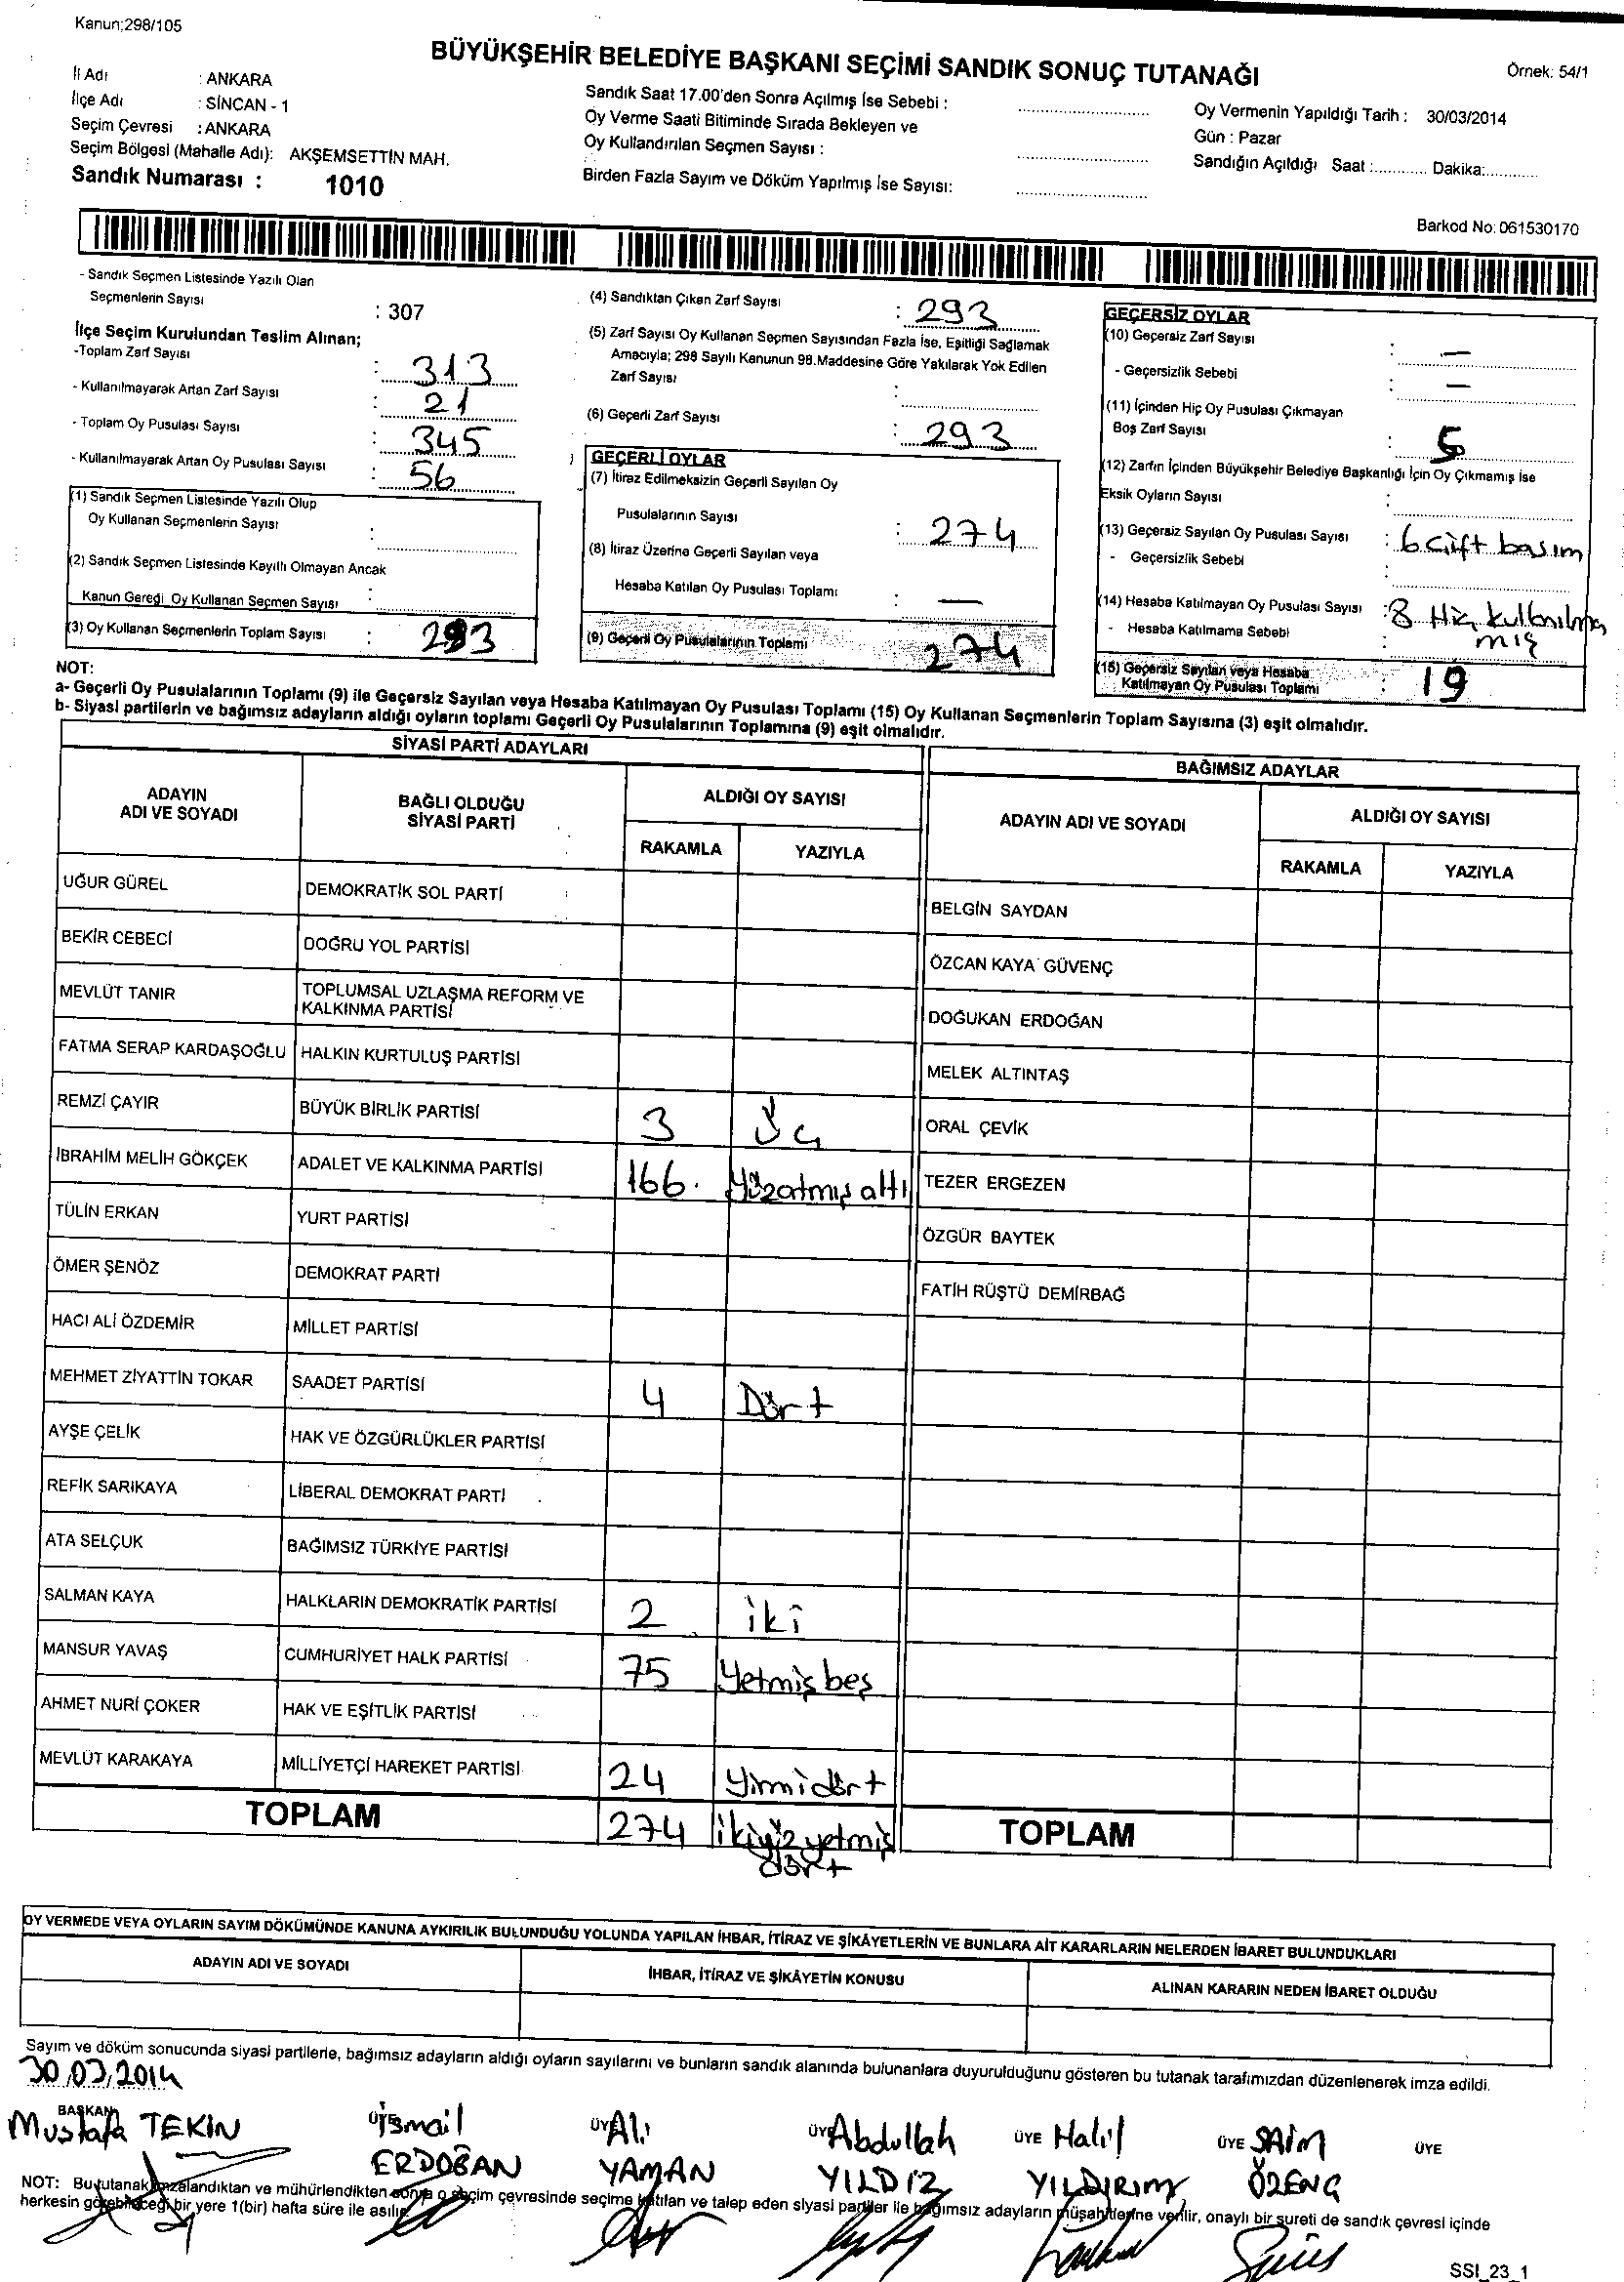 Kanun;298/105
BÜYÜKŞEHİR BELEDİYE BAŞKANI SEÇİMİ SANDIK SONUÇ TUTANAĞI
Örnek: 54/1
İl Adı : ANKARA
İlçe Adı : SİNCAN - 1
Seçim Çevresi : ANKARA
Seçim Bölgesi (Mahalle Adı): AKŞEMSETTİN MAH.
Sandık Numarası : 1010
Sandık Saat 17.00'den Sonra Açılmış İse Sebebi :
Oy Verme Saati Bitiminde Sırada Bekleyen ve
Oy Kullandırılan Seçmen Sayısı :
Birden Fazla Sayım ve Döküm Yapılmış İse Sayısı:
Oy Vermenin Yapıldığı Tarih : 30/03/2014
Gün : Pazar
Sandığın Açıldığı Saat :............ Dakika:............
Barkod No: 061530170
- Sandık Seçmen Listesinde Yazılı Olan
Seçmenlerin Sayısı : 307
İlçe Seçim Kurulundan Teslim Alınan;
-Toplam Zarf Sayısı : 313
- Kullanılmayarak Artan Zarf Sayısı : 21
- Toplam Oy Pusulası Sayısı : 345
- Kullanılmayarak Artan Oy Pusulası Sayısı : 56
(1) Sandık Seçmen Listesinde Yazılı Olup
Oy Kullanan Seçmenlerin Sayısı :
(2) Sandık Seçmen Listesinde Kayıtlı Olmayan Ancak
Kanun Gereği Oy Kullanan Seçmen Sayısı :
(3) Oy Kullanan Seçmenlerin Toplam Sayısı : 293
(4) Sandıktan Çıkan Zarf Sayısı : 293
(5) Zarf Sayısı Oy Kullanan Seçmen Sayısından Fazla İse, Eşitliği Sağlamak
Amacıyla; 298 Sayılı Kanunun 98.Maddesine Göre Yakılarak Yok Edilen
Zarf Sayısı :
(6) Geçerli Zarf Sayısı : 293
GEÇERLİ OYLAR
(7) İtiraz Edilmeksizin Geçerli Sayılan Oy
Pusulalarının Sayısı : 274
(8) İtiraz Üzerine Geçerli Sayılan veya
Hesaba Katılan Oy Pusulası Toplamı : —
(9) Geçerli Oy Pusulalarının Toplamı 274
GEÇERSİZ OYLAR
(10) Geçersiz Zarf Sayısı : —
- Geçersizlik Sebebi : —
(11) İçinden Hiç Oy Pusulası Çıkmayan
Boş Zarf Sayısı : 5
(12) Zarfın İçinden Büyükşehir Belediye Başkanlığı İçin Oy Çıkmamış İse
Eksik Oyların Sayısı :
(13) Geçersiz Sayılan Oy Pusulası Sayısı : 6 Çift basım
- Geçersizlik Sebebi :
(14) Hesaba Katılmayan Oy Pusulası Sayısı : 8 Hiç kullanılma
- Hesaba Katılmama Sebebi : mış
(15) Geçersiz Sayılan veya Hesaba
Katılmayan Oy Pusulası Toplamı : 19
NOT:
a- Geçerli Oy Pusulalarının Toplamı (9) ile Geçersiz Sayılan veya Hesaba Katılmayan Oy Pusulası Toplamı (15) Oy Kullanan Seçmenlerin Toplam Sayısına (3) eşit olmalıdır.
b- Siyasi partilerin ve bağımsız adayların aldığı oyların toplamı Geçerli Oy Pusulalarının Toplamına (9) eşit olmalıdır.
SİYASİ PARTİ ADAYLARI
ADAYIN
ADI VE SOYADI
BAĞLI OLDUĞU
SİYASİ PARTİ
ALDIĞI OY SAYISI
RAKAMLA YAZIYLA
UĞUR GÜREL DEMOKRATİK SOL PARTİ
BEKİR CEBECİ DOĞRU YOL PARTİSİ
MEVLÜT TANIR TOPLUMSAL UZLAŞMA REFORM VE
KALKINMA PARTİSİ
FATMA SERAP KARDAŞOĞLU HALKIN KURTULUŞ PARTİSİ
REMZİ ÇAYIR BÜYÜK BİRLİK PARTİSİ 3 Üç
İBRAHİM MELİH GÖKÇEK ADALET VE KALKINMA PARTİSİ 166. Yüzatmış altı
TÜLİN ERKAN YURT PARTİSİ
ÖMER ŞENÖZ DEMOKRAT PARTİ
HACI ALİ ÖZDEMİR MİLLET PARTİSİ
MEHMET ZİYATTİN TOKAR SAADET PARTİSİ 4 Dört
AYŞE ÇELİK HAK VE ÖZGÜRLÜKLER PARTİSİ
REFİK SARIKAYA LİBERAL DEMOKRAT PARTİ
ATA SELÇUK BAĞIMSIZ TÜRKİYE PARTİSİ
SALMAN KAYA HALKLARIN DEMOKRATİK PARTİSİ 2 iki
MANSUR YAVAŞ CUMHURİYET HALK PARTİSİ 75 Yetmiş beş
AHMET NURİ ÇOKER HAK VE EŞİTLİK PARTİSİ
MEVLÜT KARAKAYA MİLLİYETÇİ HAREKET PARTİSİ 24 Yirmi dört
TOPLAM 274 ikiyüz yetmiş
dört
BAĞIMSIZ ADAYLAR
ADAYIN ADI VE SOYADI
ALDIĞI OY SAYISI
RAKAMLA YAZIYLA
BELGİN SAYDAN
ÖZCAN KAYA GÜVENÇ
DOĞUKAN ERDOĞAN
MELEK ALTINTAŞ
ORAL ÇEVİK
TEZER ERGEZEN
ÖZGÜR BAYTEK
FATİH RÜŞTÜ DEMİRBAĞ
TOPLAM
OY VERMEDE VEYA OYLARIN SAYIM DÖKÜMÜNDE KANUNA AYKIRILIK BULUNDUĞU YOLUNDA YAPILAN İHBAR, İTİRAZ VE ŞİKÂYETLERİN VE BUNLARA AİT KARARLARIN NELERDEN İBARET BULUNDUKLARI
ADAYIN ADI VE SOYADI İHBAR, İTİRAZ VE ŞİKÂYETİN KONUSU ALINAN KARARIN NEDEN İBARET OLDUĞU
Sayım ve döküm sonucunda siyasi partilerle, bağımsız adayların aldığı oyların sayılarını ve bunların sandık alanında bulunanlara duyurulduğunu gösteren bu tutanak tarafımızdan düzenlenerek imza edildi.
30.03.2014
BAŞKAN ÜYE ÜYE ÜYE ÜYE ÜYE ÜYE
Mustafa TEKİN
İsmail ERDOĞAN
Ali YAMAN
Abdullah YILDIZ
Halil YILDIRIM
SAİM ÖZENÇ
NOT: Bu tutanak imzalandıktan ve mühürlendikten sonra o seçim çevresinde seçime katılan ve talep eden siyasi partiler ile bağımsız adayların müşahitlerine verilir, onaylı bir sureti de sandık çevresi içinde
herkesin görebileceği bir yere 1(bir) hafta süre ile asılır.
SSI_23_1